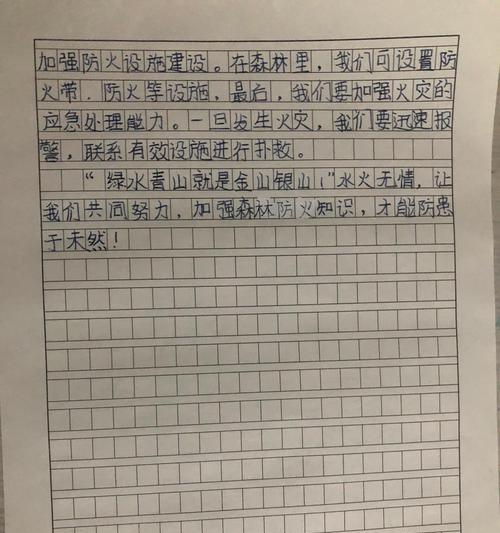 加强防火设施建设。在森林里，我们可设置防
火带．防火等设施，最后，我们要加强火灾的
应急处理能力。一旦发生火灾，我们要迅速报
警，联系有效设施进行扑救。
“绿水青山就是金山银山！”水火无情，让
我们共同努力，加强森林防火知识，才能防患
于未然！